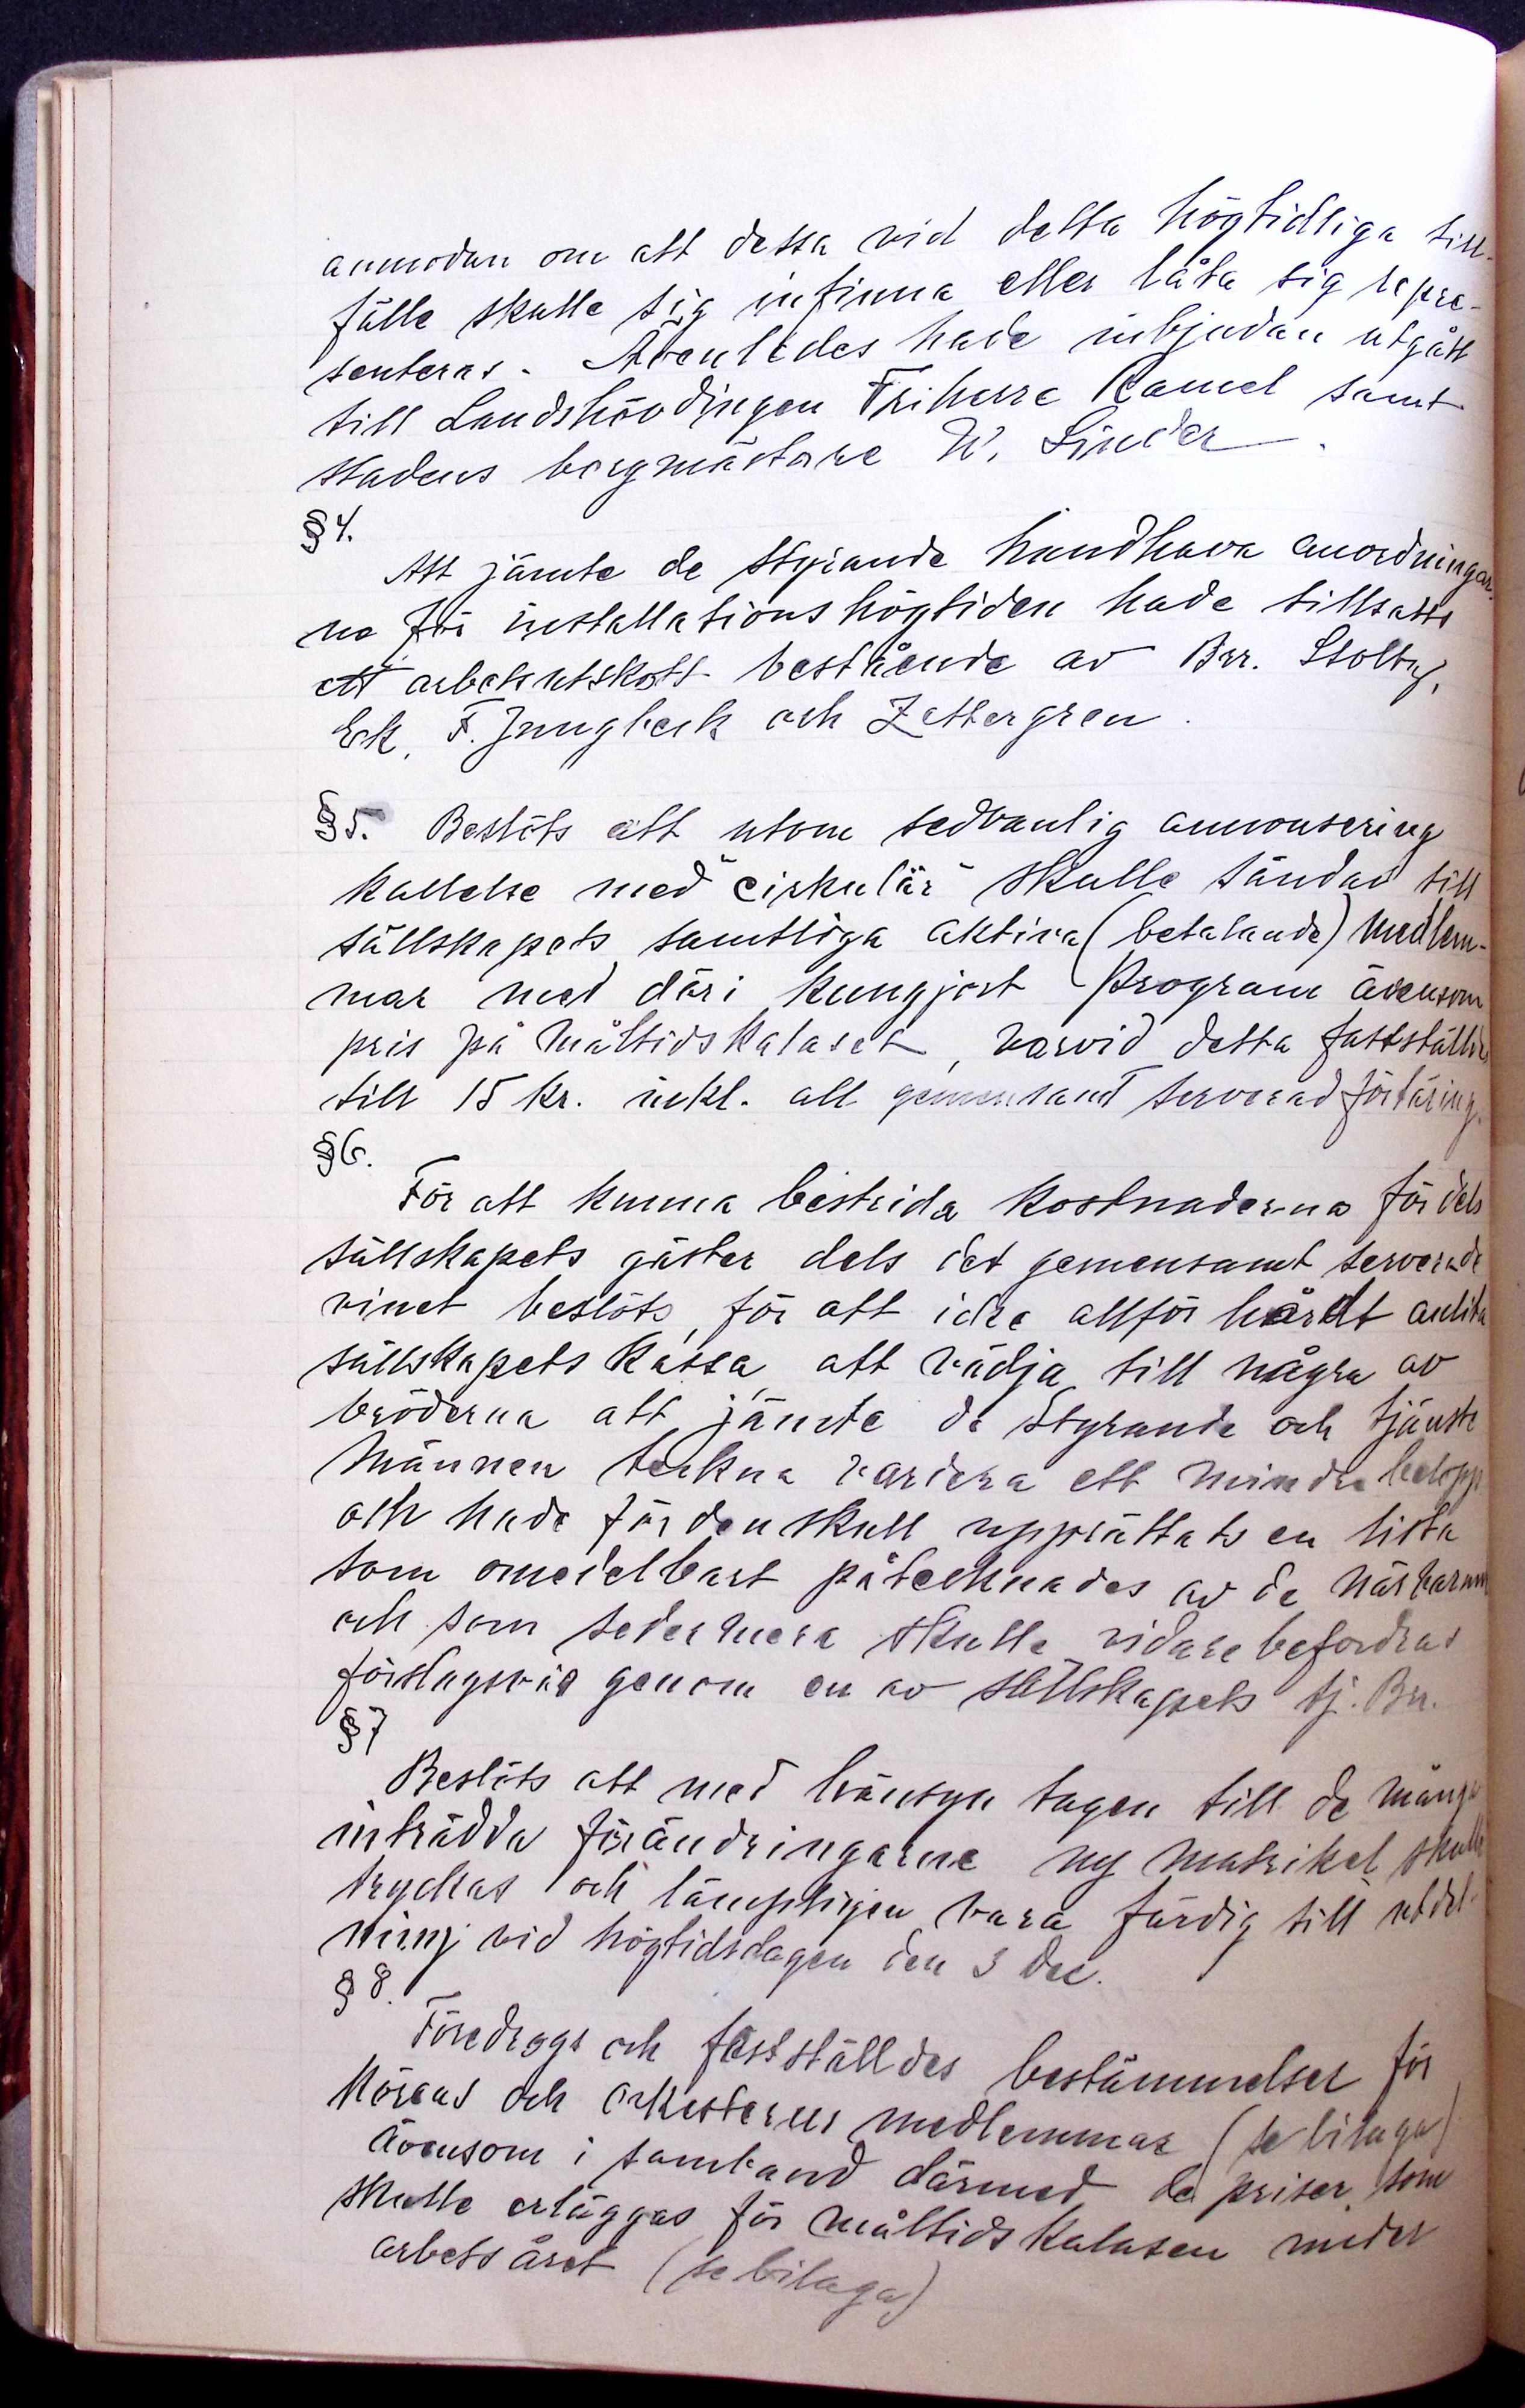 anmodan om att dessa vid detta högtidliga till-
fälle skulle sig infinna eller låta sig repre-
senteras. Ävenledes hade inbjudan utgått
till Landshövdingen Friherre Ramel samt
stadens borgmästare W. Linder.
§ 4.
Att jämte de styrande handhava anordningar-
na för installationshögtiden hade tillsatts
ett arbetsutskott bestående av Brr. Stoltz,
Ek, F. Jungbeck och Zettergren.
§ 5. Beslöts att utom sedvanlig annonsering
kallelse med "cirkulär" skulle sändas till
sällskapets samtliga aktiva (betalande) medlem-
mar med däri kungjort program ävensom
pris på måltidskalaset, varvid detta fastställdes
till 15 kr. inkl. all gemensamt serverad förtäring.
§ 6.
För att kunna bestrida kostnaderna för dels
sällskapets gäster dels det gemensamt serverade
vinet beslöts, för att icke allför hårdt anlita
sällskapets kassa, att vädja till några av
bröderna att jämte de styrande och tjänste
männen teckna vardera ett mindre belopp
och hade för den skull upprättats en lista
som omedelbart påtecknades av de närvarande
och som sedermera skulle vidarebefordras
förslagsvis genom en av sällskapets tj. Brr.
§ 7
Beslöts att med hänsyn tagen till de många
inträdda förändringarne ny matrikel skulle
tryckas och lämpligen vara färdig till utdel-
ning vid högtidsdagen den 3 dec.
§ 8.
Föredrogs och fastställdes bestämmelser för
körens och orkesterns medlemmar (se bilaga)
ävensom i samband därmed de priser som
skulle erläggas för måltidskalasen under
arbetsåret (se bilaga)